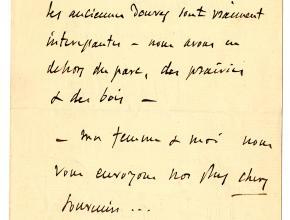 les anciennes douves sont vraiment
interessantes – nous avons en
dehors du parc, des prairies
& des bois –
– ma femme & moi nous
vous envoyons nos plus chers
souvenirs ...